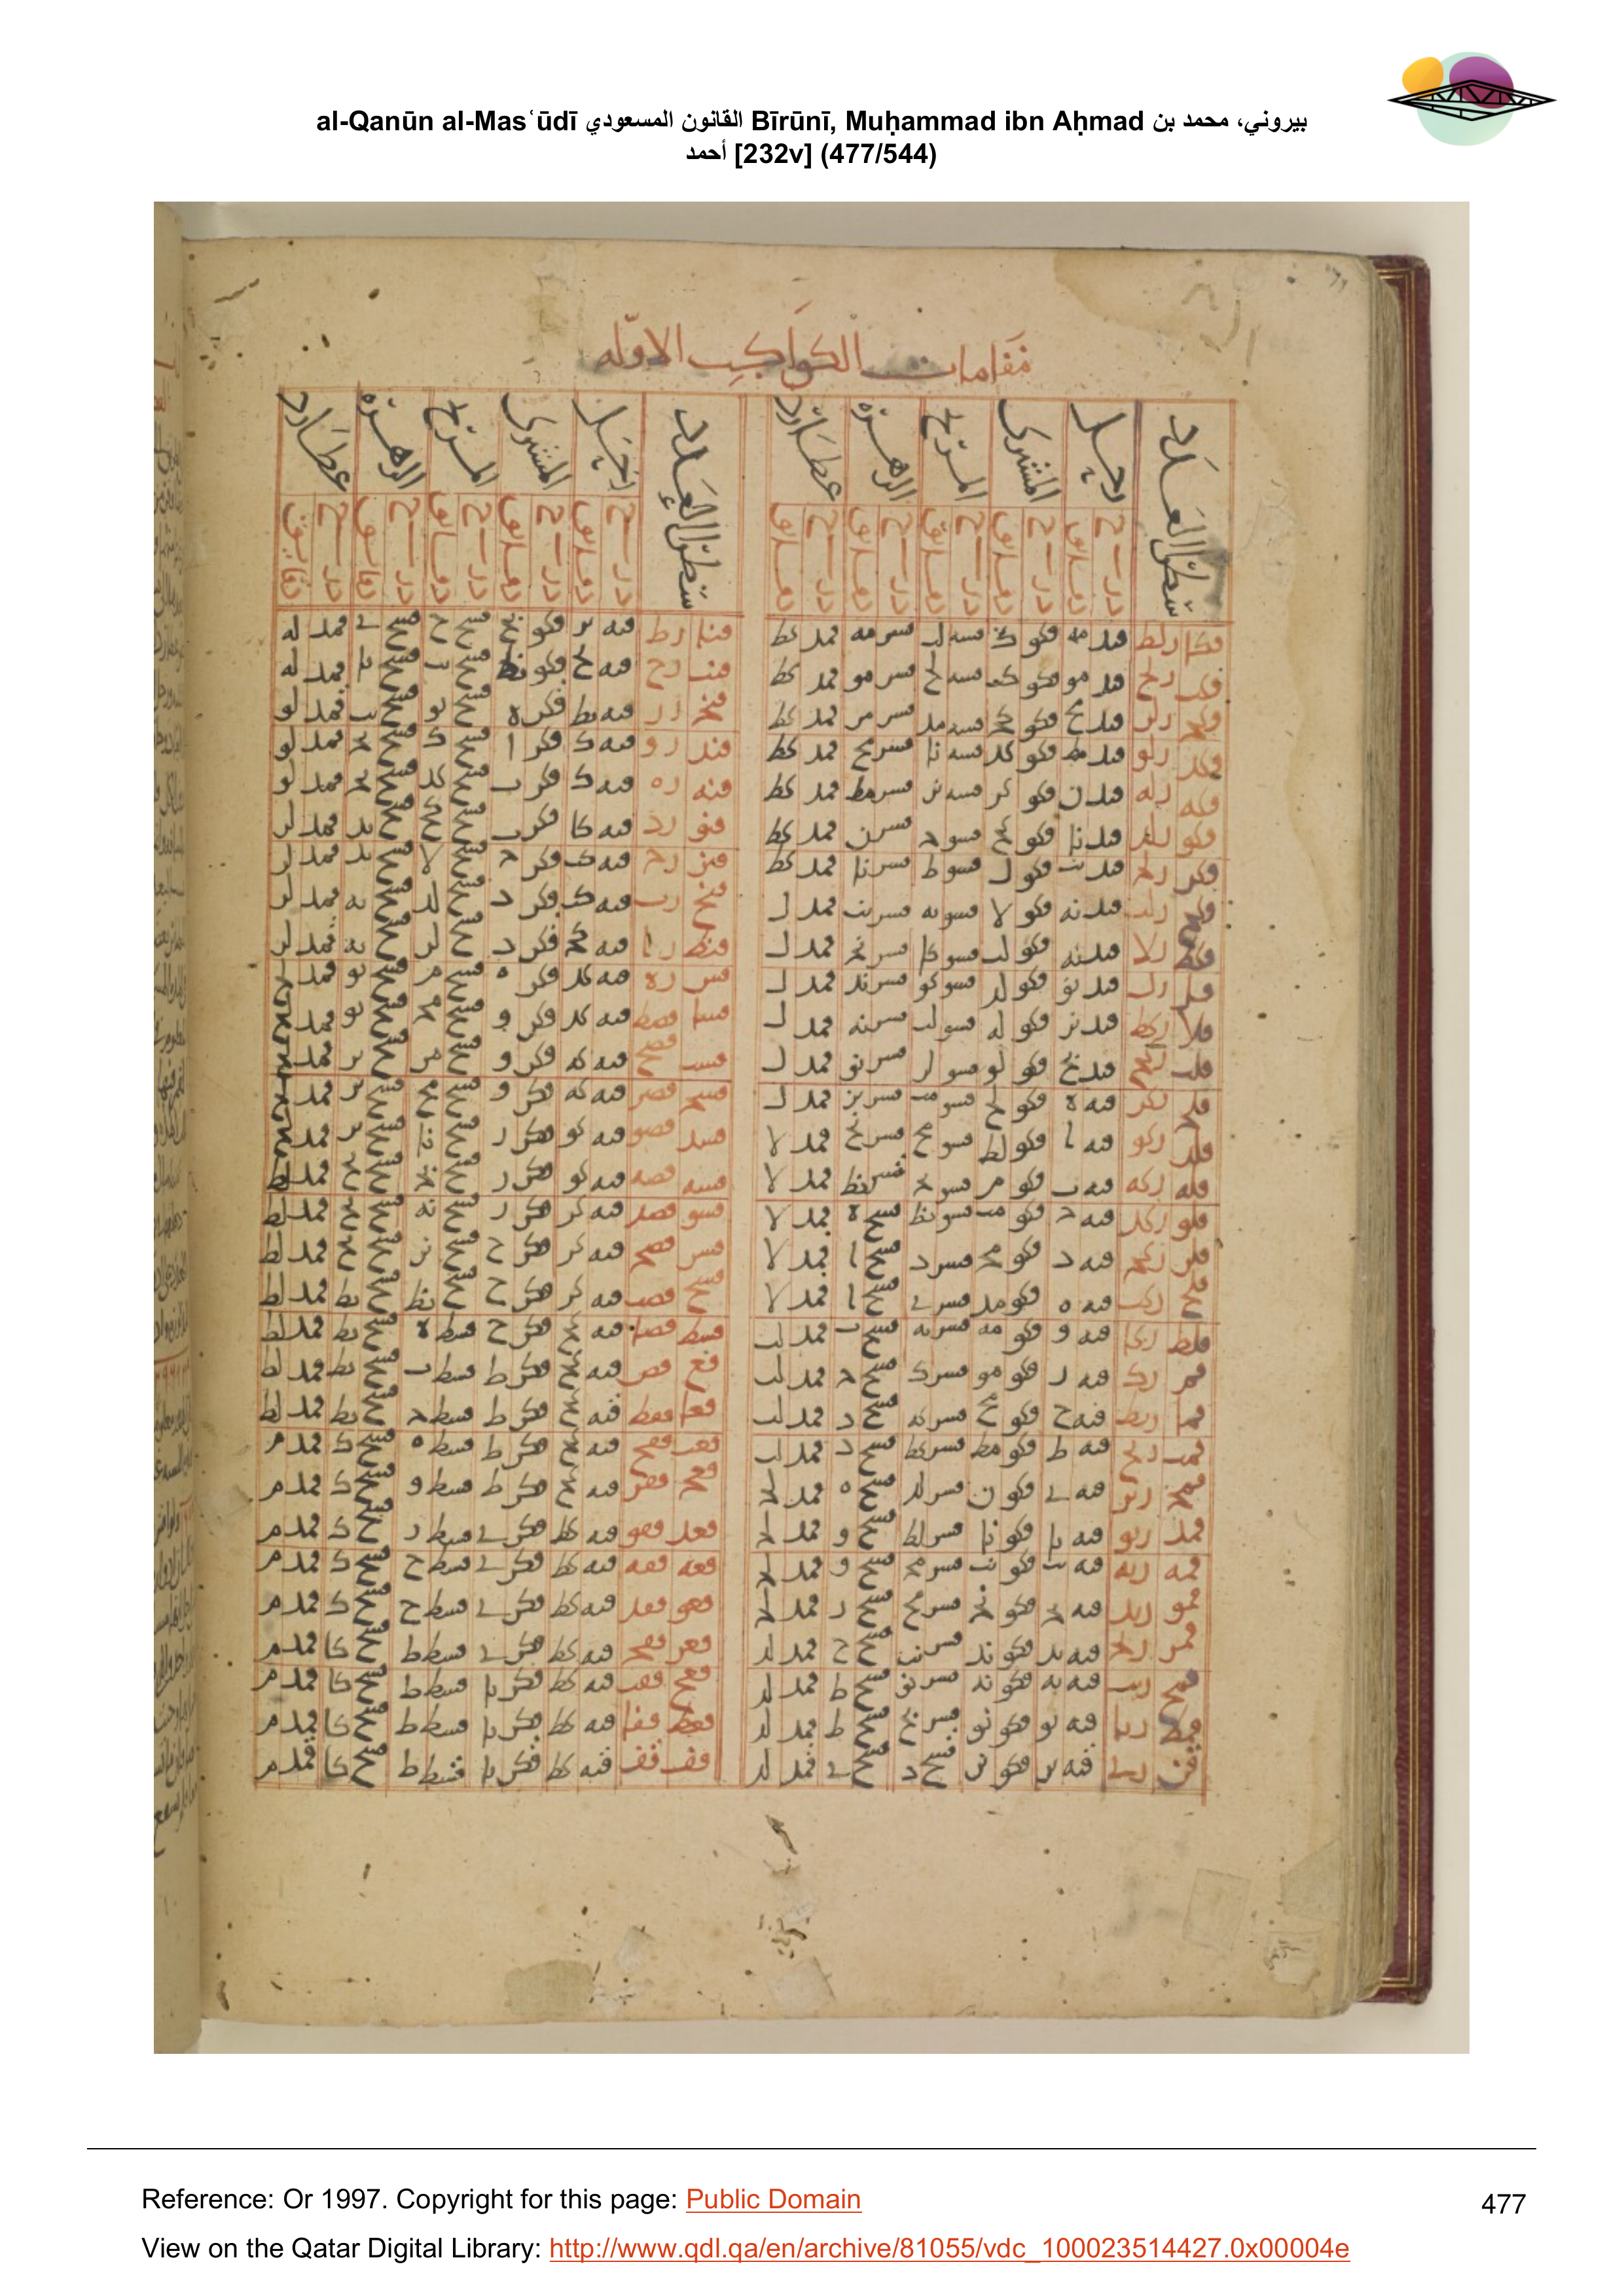 al-Qanūn al-Mas‘ūdī القانون المسعودي Bīrūnī, Muḥammad ibn Aḥmad بيروني، محمد بن
أحمد [232v] (477/544)
مقامات الكواكب الاولة
سطرا العدد زحل المشترى المريخ الزهرة عطارد
درج دقايق درج دقايق درج دقايق درج دقايق درج دقايق
قكا رلط قيد مه قكو ك قسه لب قسز مه قمد كط
قكب رلح قيد مو قكو قسه لح قسز مو قمد كط
قكج رلز قيد مح قكو كج قسه مد قسز مز قمد كط
قكد رلو قيد مط قكو كد قسه نا قسز مح قمد كط
قكه رله قيد ن قكو كز قسه نز قسز مط قمد كط
قكو رلد قيد نا قكو كح قسو ج قسز ن قمد كط
قكز رلج قيد نب قكو ل قسو ط قسز نا قمد كط
قكح رلب قيد نه قكو لا قسو يه قسز نب قمد ل
قكط رلا قيد نه قكو لب قسو كا قسز نج قمد ل
قل رل قيد نو قكو لد قسو كو قسز ند قمد ل
قلا ركط قيد نز قكو له قسو لب قسز نه قمد ل
قلب ركح قيد نح قكو لو قسو لز قسز نو قمد ل
قلج ركز قيه ه قكو لح قسو مب قسز نز قمد ل
قلد ركو قيه ا قكو لط قسو مح قسز نح قمد لا
قله ركه قيه ب قكو م قسو نج قسز نط قمد لا
قلو ركد قيه ج قكو مب قسو نط قسح ه قمد لا
قلز ركج قيه د قكو مج قسز د قسح ا قمد لا
قلح ركب قيه ه قكو مد قسز ي قسح ا قمد لا
قلط ركا قيه و قكو مه قسز يه قسح ب قمد لب
قم رك قيه ز قكو مو قسز ك قسح ج قمد لب
قما ريط قيه ح قكو مح قسز كه قسح د قمد لب
قمب ريح قيه ط قكو مط قسز كط قسح د قمد لب
قمج ريز قيه ي قكو ن قسز لد قسح ه قمد لج
قمد ريو قيه يا قكو نا قسز لط قسح و قمد لج
قمه ريه قيه يب قكو نب قسز مج قسح و قمد لج
قمو ريد قيه يج قكو نج قسز مح قسح ز قمد لج
قمز ريج قيه يد قكو ند قسز نب قسح ح قمد لد
قمح ريب قيه يه قكو ند قسز نو قسح ط قمد لد
قمط ريا قيه يو قكو نو قسز نح قسح ط قمد لد
قن ري قيه يز قكو نز قسح د قسح ي قمد لد
سطرا العدد زحل المشترى المريخ الزهرة عطارد
درج دقايق درج دقايق درج دقايق درج دقايق درج دقايق
قنا رط قيه يز قكو نح قسح ح قسح ي قمد له
قنب رح قيه يح قكو نط قسح يب قسح يا قمد له
قنج رز قيه يط قكز ه قسح يو قسح يب قمد لو
قند رو قيه ك قكز ا قسح ك قسح يج قمد لو
قنه ره قيه ك قكز ب قسح كد قسح يج قمد لو
قنو رد قيه كا قكز ب قسح كح قسح يد قمد لز
قنز رج قيه كب قكز ج قسح لا قسح يد قمد لز
قنح رب قيه كب قكز د قسح لد قسح يه قمد لز
قنط را قيه كج قكز د قسح لز قسح يه قمد لز
قس ره قيه كد قكز ه قسح م قسح يو قمد لح
قسا قصط قيه كد قكز و قسح مج قسح يو قمد لح
قسب قصح قيه كه قكز و قسح مز قسح يز قمد لح
قسج قصز قيه كه قكز و قسح مح قسح يز قمد لح
قسد قصو قيه كو قكز ز قسح نا قسح يز قمد لح
قسه قصه قيه كو قكز ز قسح نج قسح يح قمد لط
قسو قصد قيه كز قكز ز قسح نه قسح يح قمد لط
قسز قصج قيه كز قكز ح قسح نز قسح يح قمد لط
قسح قصب قيه كز قكز ح قسح نط قسح يط قمد لط
قسط قصا قيه كح قكز ح قسط ه قسح يط قمد لط
قع قص قيه كح قكز ط قسط ب قسح يط قمد لط
قعا قفط قيه كح قكز ط قسط ج قسح يط قمد لط
قعب قفح قيه كح قكز ط قسط ه قسح ك قمد م
قعج قفز قيه كح قكز ط قسط و قسح ك قمد م
قعد قفو قيه كط قكز ي قسط ز قسح ك قمد م
قعه قفه قيه كط قكز ي قسط ح قسح ك قمد م
قعو قفد قيه كط قكز ي قسط ح قسح ك قمد م
قعز قفج قيه كط قكز ي قسط ط قسح كا قمد م
قعح قفب قيه كط قكز يا قسط ط قسح كا قمد م
قعط قفا قيه كط قكز يا قسط ط قسح كا قمد م
قف قف قيه كط قكز يا قسط ط قسح كا قمد م
Reference: Or 1997. Copyright for this page: Public Domain
477
View on the Qatar Digital Library: http://www.qdl.qa/en/archive/81055/vdc_100023514427.0x00004e